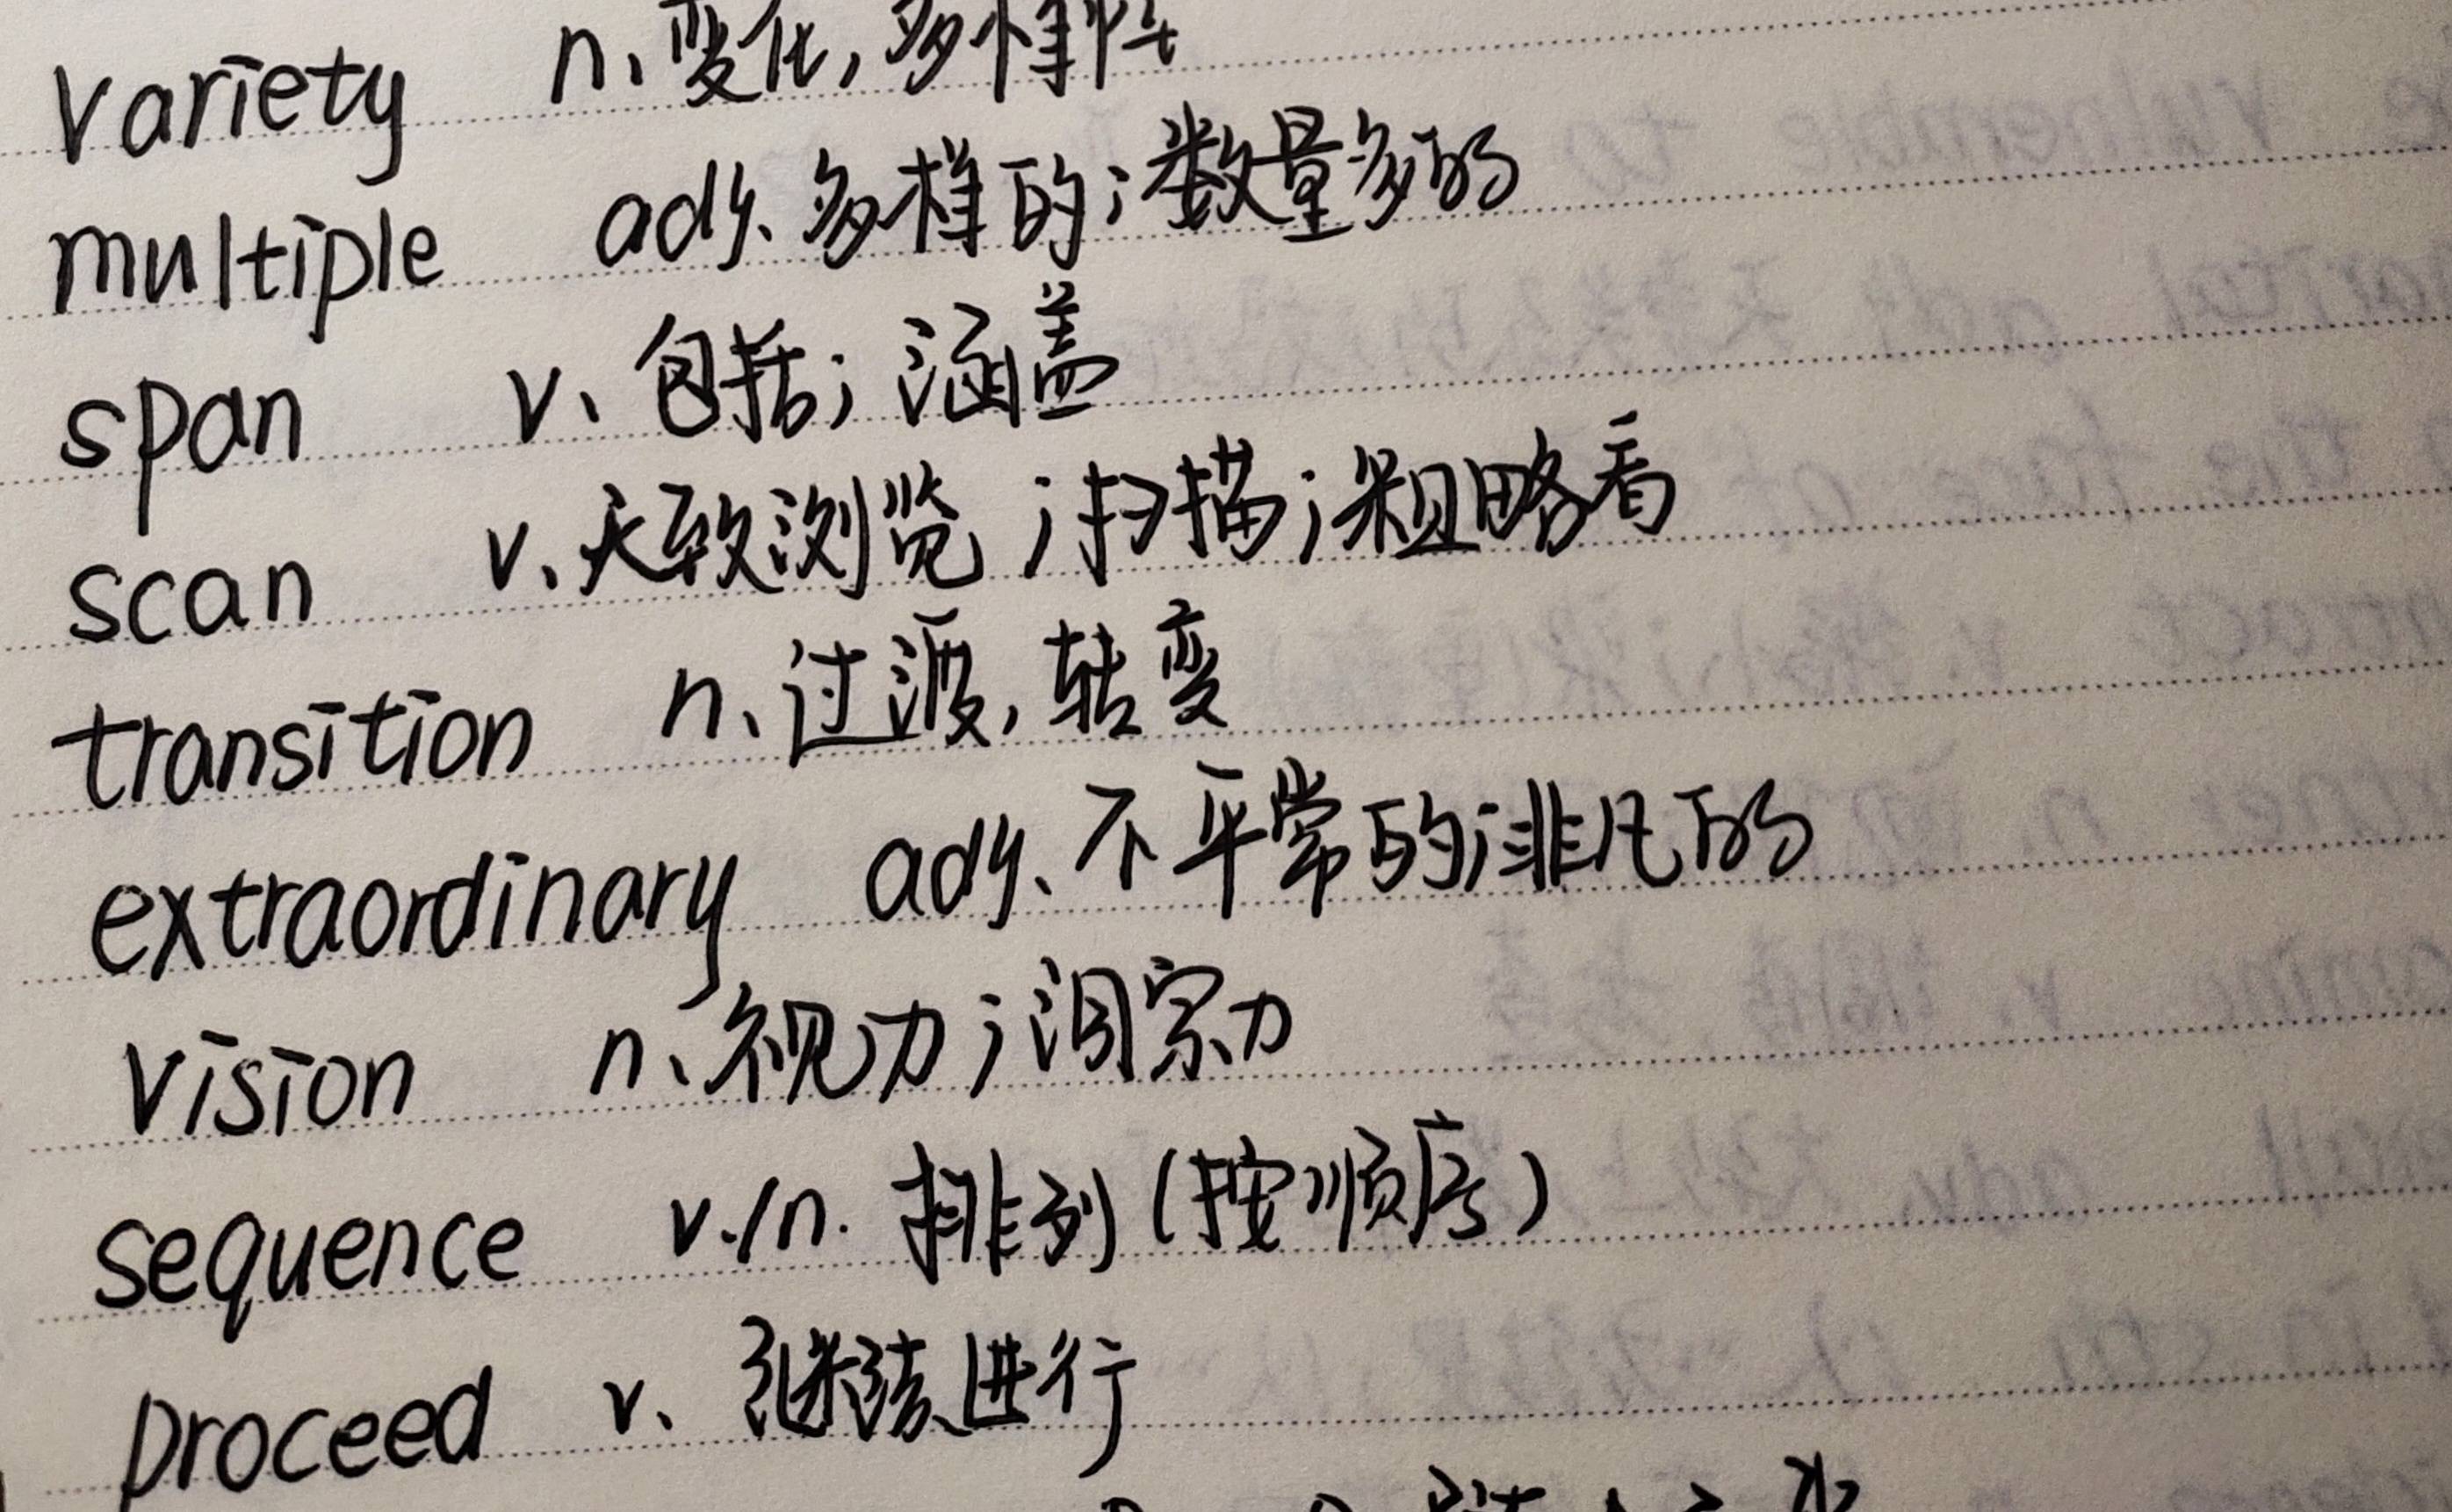 variety n. 变化,多样性
multiple adj. 多样的;数量多的
span v. 包括;涵盖
scan v. 大致浏览;扫描;粗略看
transition n. 过渡,转变
extraordinary adj. 不平常的;非凡的
vision n. 视力;洞察力
sequence v./n. 排列(按顺序)
proceed v. 继续进行